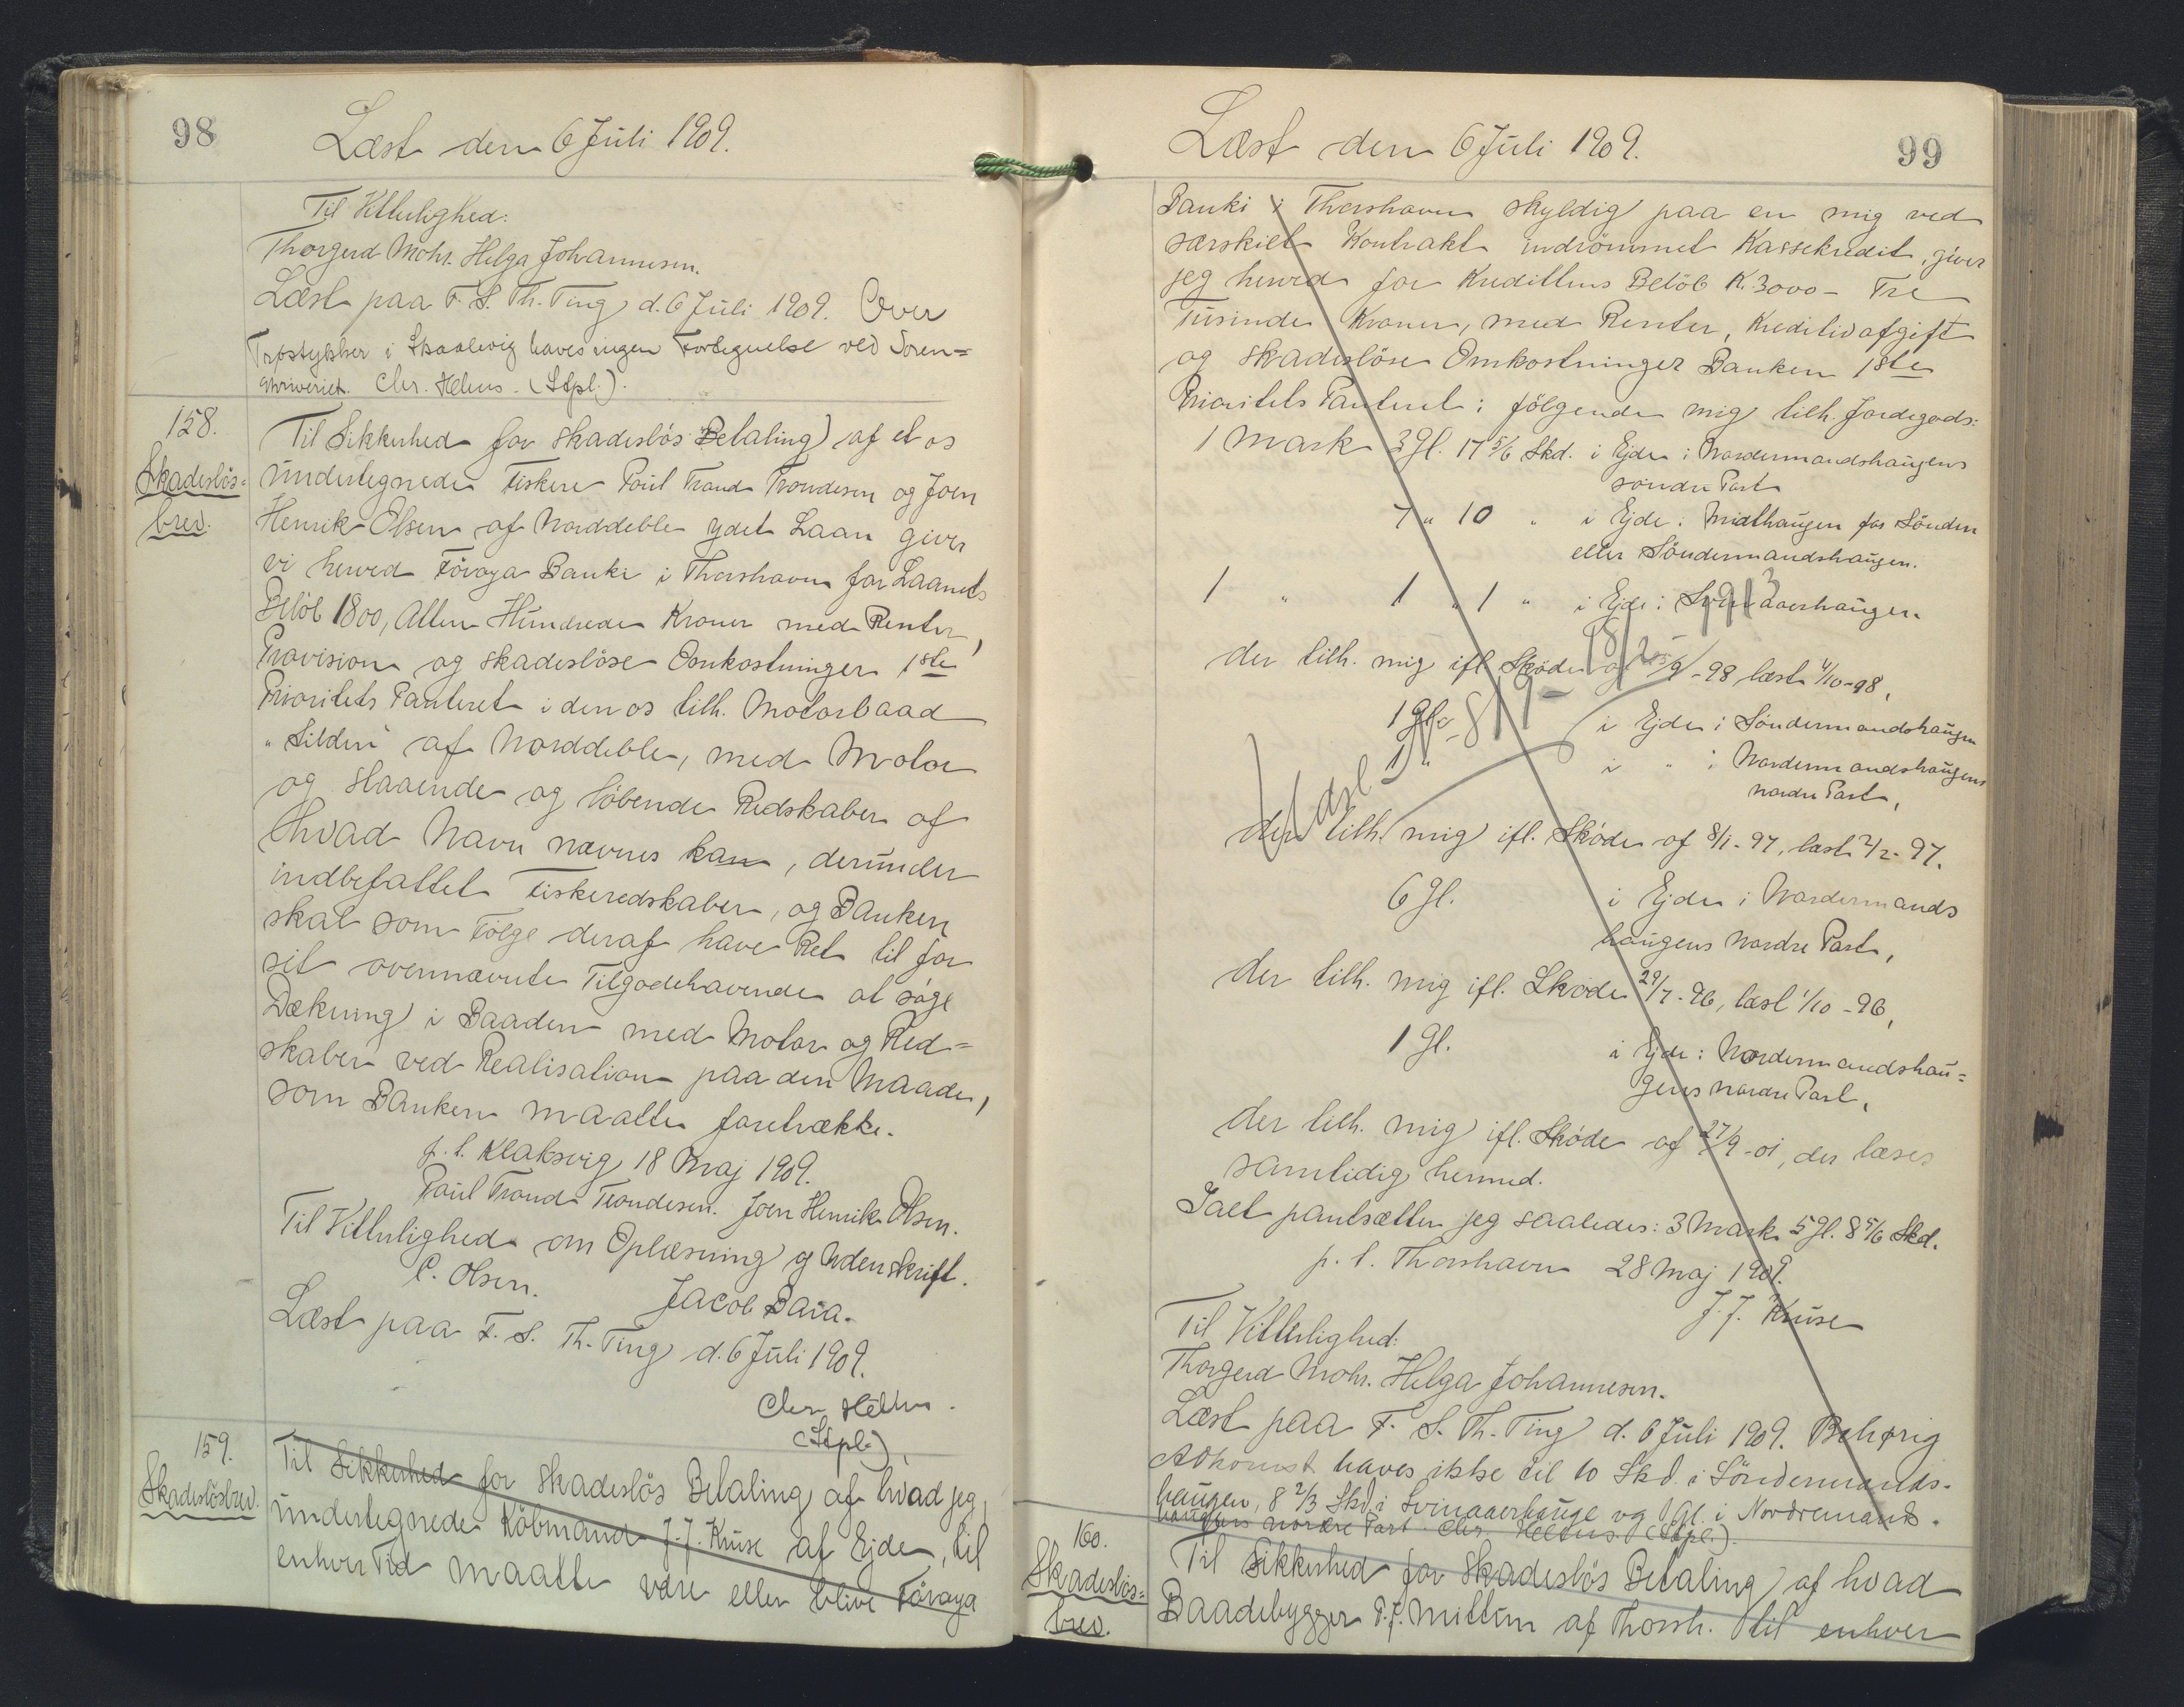 98
Læst den 6 Juli 1909.
Til Vitterlighed:
Thorgerd Mohr. Helga Johannesen.
Læst paa F. S. Th. Ting d. 6 Juli 1909. Over
Tæpstykker i Skaalevig haves ingen Fortegnelse ved Soren=
skriveriet. Chr. Heltns. (Stpl.).
158.
Skadeslös=
brev.
Til Sikkerhed for skadeslös Betaling af et os
undertegnede Fiskere Poul Trond Trondesen og Joen
Henrik Olsen af Norddeble ydet Laan giver
vi herved Föroya Banki i Thorshavn for Laanets
Belöb 1800, Atten Hundrede Kroner med Renter,
Provision og skadeslöse Omkostninger 1ste
Prioritets Panteret i den os tilh. Motorbaad
"Silden" af Norddeble, med Motor
og staaende og löbende Redskaber af
hvad Navn nævnes kan, derunder
indbefattet Fiskeredskaber, og Banken
skal som Fölge deraf have Ret til for
sit ovennævnte Tilgodehavende at söge
Dækning i Baaden med Motor og Red=
skaber ved Realisation paa den Maade,
som Banken maatte foretrække.
p. t. Klaksvig 18 Maj 1909.
Poul Trond Trondesen. Joen Henrik Olsen.
Til Vitterlighed om Oplæsning og Underskrift.
C. Olsen. Jacob Dara.
Læst paa F. S. Th. Ting d. 6 Juli 1909.
Chr. Heltns.
(Stpl.)
159.
Skadeslösbrev.
Til Sikkerhed for skadeslös Betaling af hvad jeg,
undertegnede Köbmand J. J. Kruse af Ejde, til
enhver Tid maatte være eller blive Föroya
99
Læst den 6 Juli 1909.
Banki i Thorshavn skyldig paa en mig ved
særskilt Kontrakt indrömmet Kassekredit, giver
jeg herved for Kredittens Belöb Kr. 3000 - Tre
Tusinde Kroner, med Renter, Kreditivafgift
og skadeslöse Omkostninger Banken 1ste
Prioritets Panteret i fölgende mig tilh. Jordegods:
1 Mark 3 Gl. 17 5/6 Skd. i Ejde: Nordermandshaugens
söndre Part
7 " 10 " i Ejde: Midthaugen for Sönden
eller Söndermandshaugen.
1 " 1 " 1 " i Ejde: Svinaaerhaugen.
der tilh. mig ifl. Sköde af /9-98, læst 4/10-98,
1 Gl. i Ejde: Söndermandshaugen
1 " i " : Nordermandshaugens
nordre Part,
der tilh. mig ifl. Sköde af 8/1-97, læst 2/2-97.
6 Gl. i Ejde: Nordermands
haugens nordre Part,
der tilh. mig ifl. Sköde 29/7-96, læst 1/10-96,
1 Gl. i Ejde: Nordermandshau=
gens nordre Part,
der tilh. mig ifl. Sköde af 27/9-01, der læses
samtidig hermed.
Ialt pantsætter jeg saaledes: 3 Mark 5 Gl. 8 5/6 Skd.
p. t. Thorshavn 28 Maj 1909.
J. J. Kruse
Til Vitterlighed:
Thorgerd Mohr. Helga Johannesen.
Læst paa F. S. Th. Ting d. 6 Juli 1909. Behørig
Adkomst haves ikke til 10 Skd. i Söndermands-
haugen, 8 2/3 Skd. i Svinaaerhauge og 1 Gl. i Nordremands-
haugens nordre Part. Chr. Heltns. (Stpl.).
160.
Skadeslös=
brev.
Til Sikkerhed for skadeslös Betaling af hvad
Baadebygger P. J. Mittun af Thorsh. til enhver